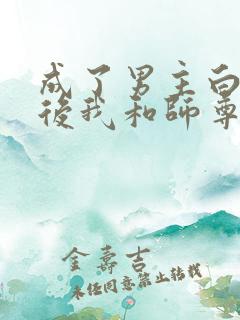 成了男主白
後我和師尊
金壽吉
未经同意禁止转载